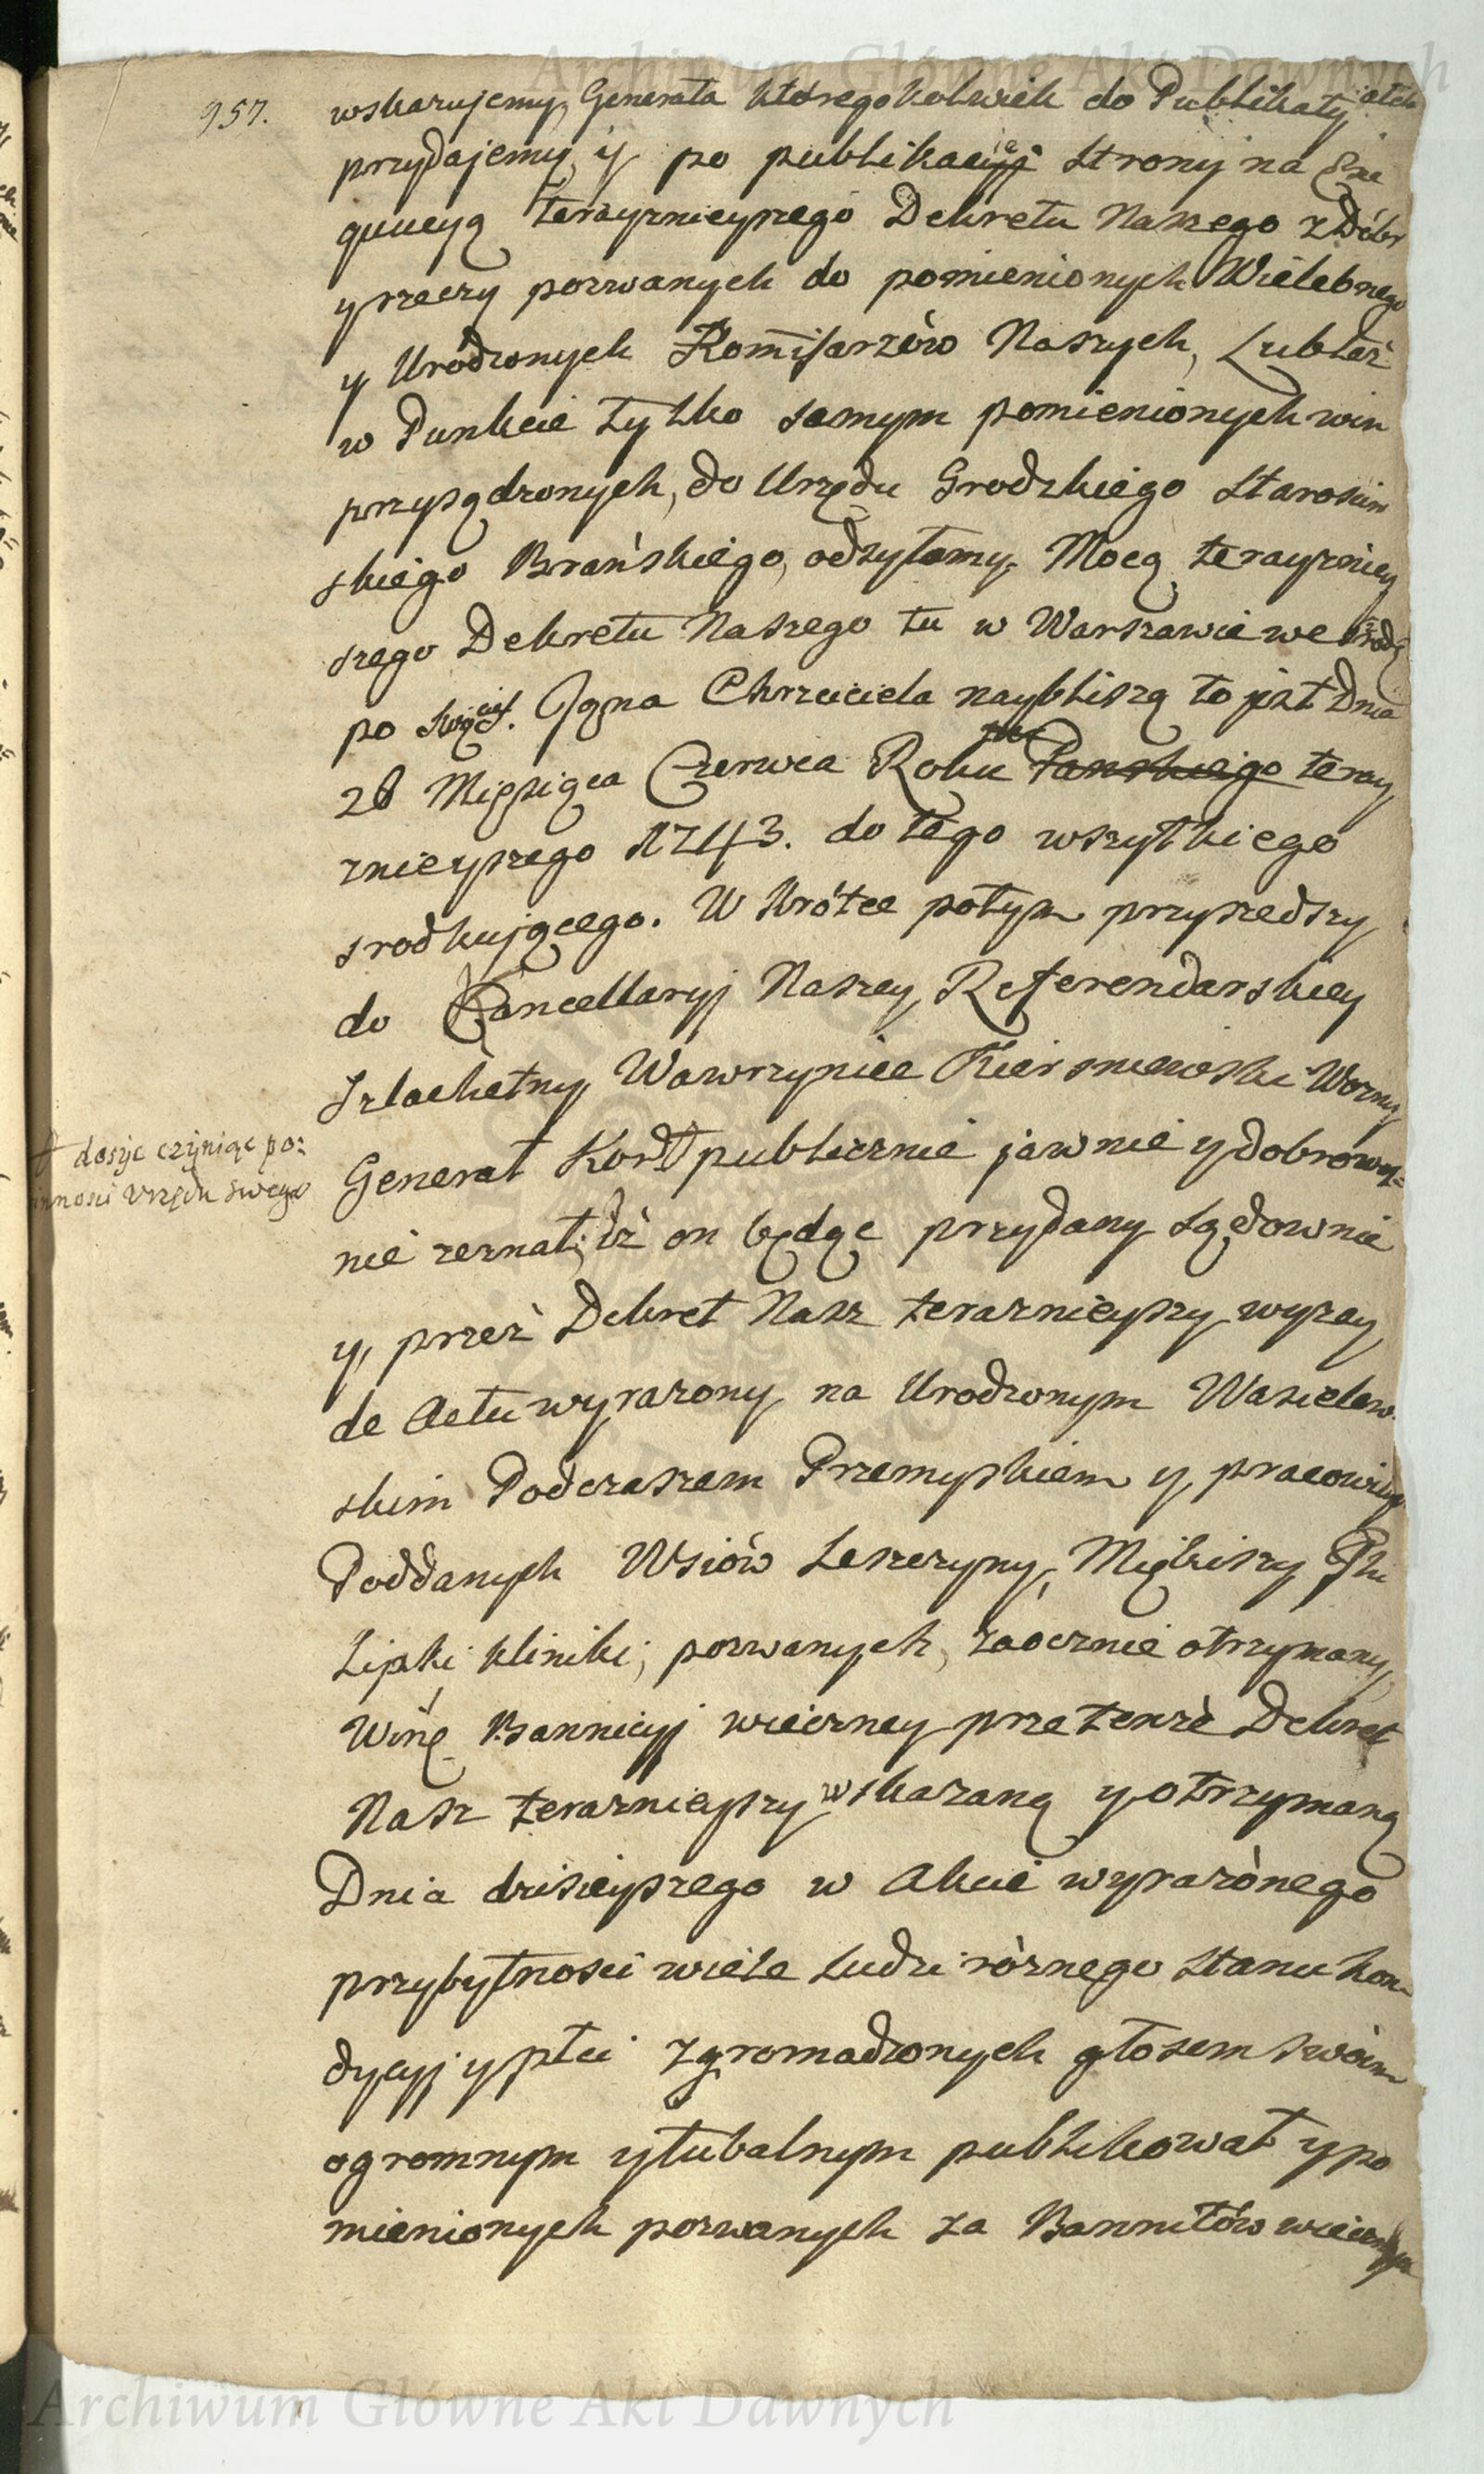 Archiwum Główne Akt Dawnych
957.
wskazujemy, Generała ktoregokolwiek do Publikaty
przydajemy, y po publikacyi strony na Exe
qucyą teraznieyszego Dekretu Naszego z Dóbr
y rzeczy pozwanych do pomienionych Wielebnego
y Urodzonych Kommissarzów Naszych, Lubteż
w Punkcie tylko samym pomienionych win
przysądzonych, do Urzędu Grodzkiego Starościn
skiego Brańskiego, odsyłamy. Mocą terayzniey
szego Dekretu Naszego tu w Warszawie we srodę
po Swięt. Jana Chrzciciela naybliszą to jest Dnia
26 Miesiąca Czerwca Roku Panskiego teray
znieyszego 1743. do tego wszytkiego
srodkującego. W Krótce potym przyszedszy
do Cancellaryj Naszey Referendarskiey
Szlachetny Wawrzyniec Kiersnowski Wozny
Generał Kor. publicznie jawnie y dobrowol=
nie zeznał, iż on będąc przydany sądownie
† dosyc czyniąc po:
innosci Urzędu swego
y, przez Dekret Nasz teraznieyszy wyzey
de Actu wyrazony na Urodzonym Wasielew
skim Podczaszem Przemyskiem y pracowitych
Poddanych Wsiów Leszczyny,
Lipki kliniki, pozwanych, zaocznie otrzymany,
Winę Bannicyj wieczney przetenże Dekret
Nasz teraznieyszy wskazaną y otrzymaną
Dnia dzisieyszego w Akcie wyrażonego
przybytności wiele Ludzi róznego stanu kon
dycyj y płci zgromadzonych głosem swoim
ogromnym y tubalnym publikował y po
mienionych pozwanych za Bannitów wiecznych
Archiwum Główne Akt Dawnych